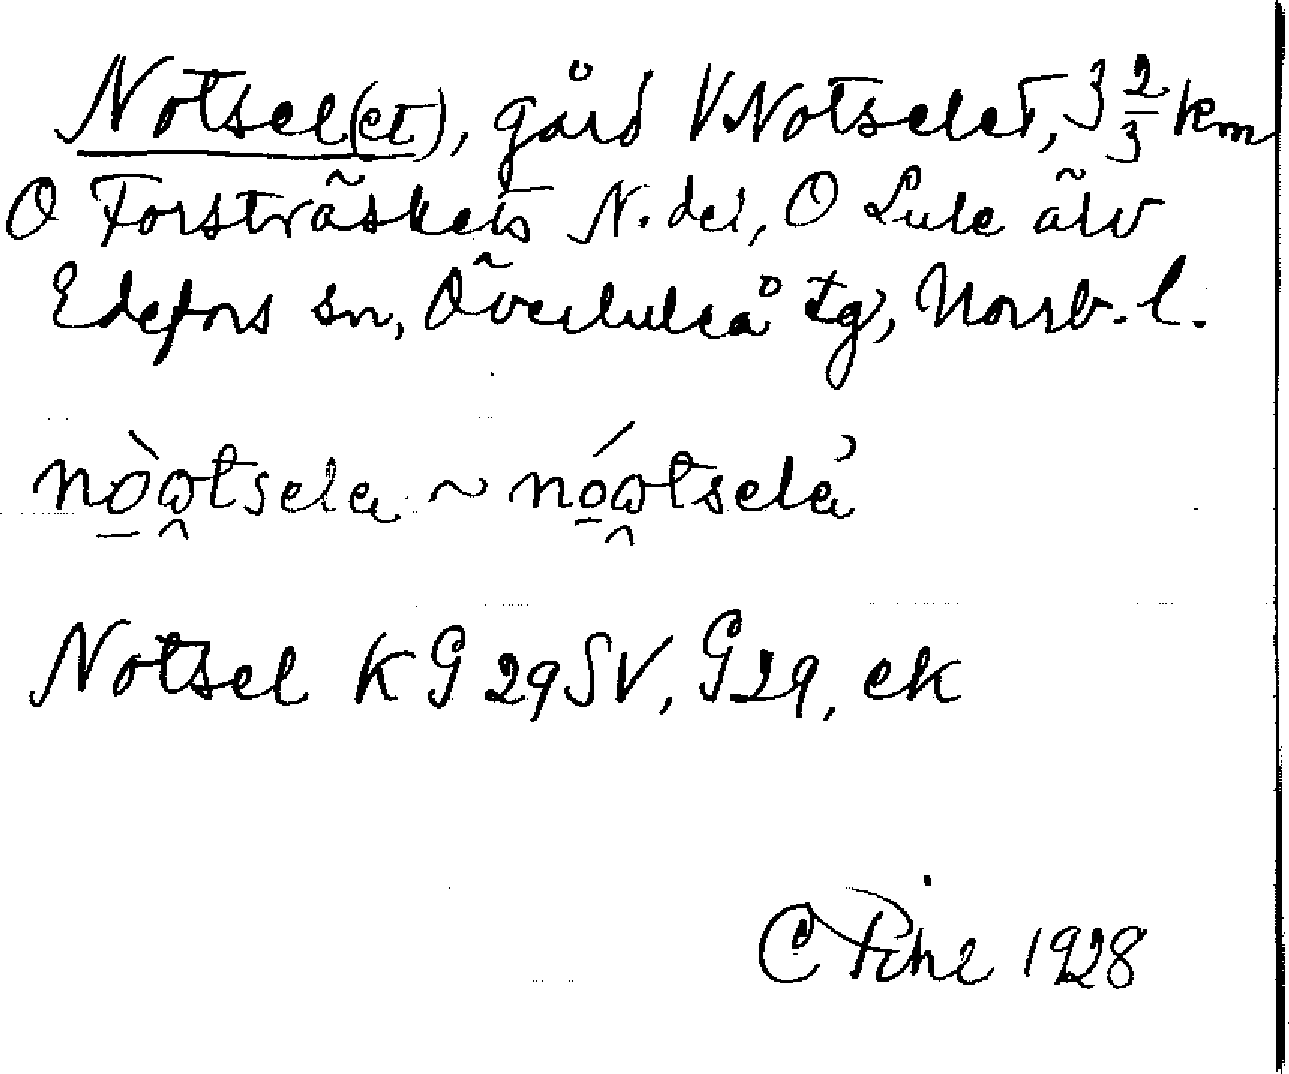 Notsel(et), gård V. Notselet, 3 2/3 km
O Forsträskets N. del, O Lule älv
Edefors sn, Överluleå tg, Norrb. l.
nò̱ω̯tsela ~ nó̱ω̯tselà
Notsel KG 29 SV, G29, ek
C Pihl 1928